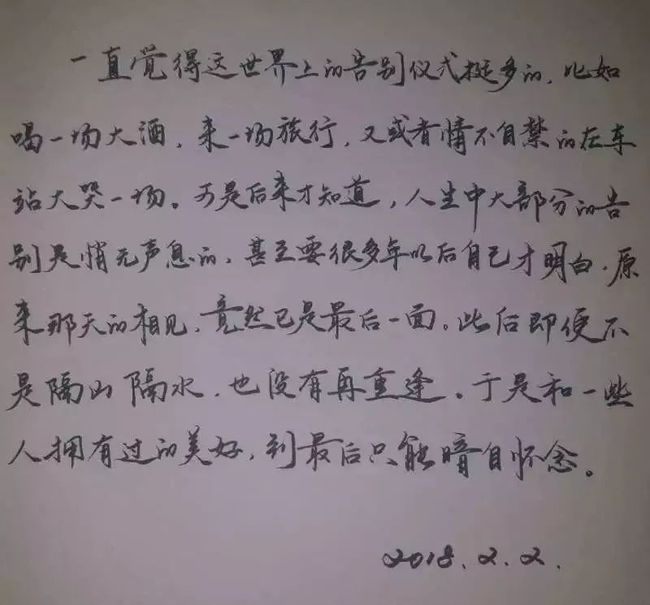 一直觉得这世界上的告别仪式挺多的，比如
喝一场大酒，来一场旅行，又或者情不自禁的在车
站大哭一场。可是后来才知道，人生中大部分的告
别是悄无声息的，甚至要很多年以后自己才明白，原
来那天的相见，竟然已是最后一面。此后即便不
是隔山隔水，也没有再重逢。于是和一些
人拥有过的美好，到最后只能暗自怀念。
2018.2.2.